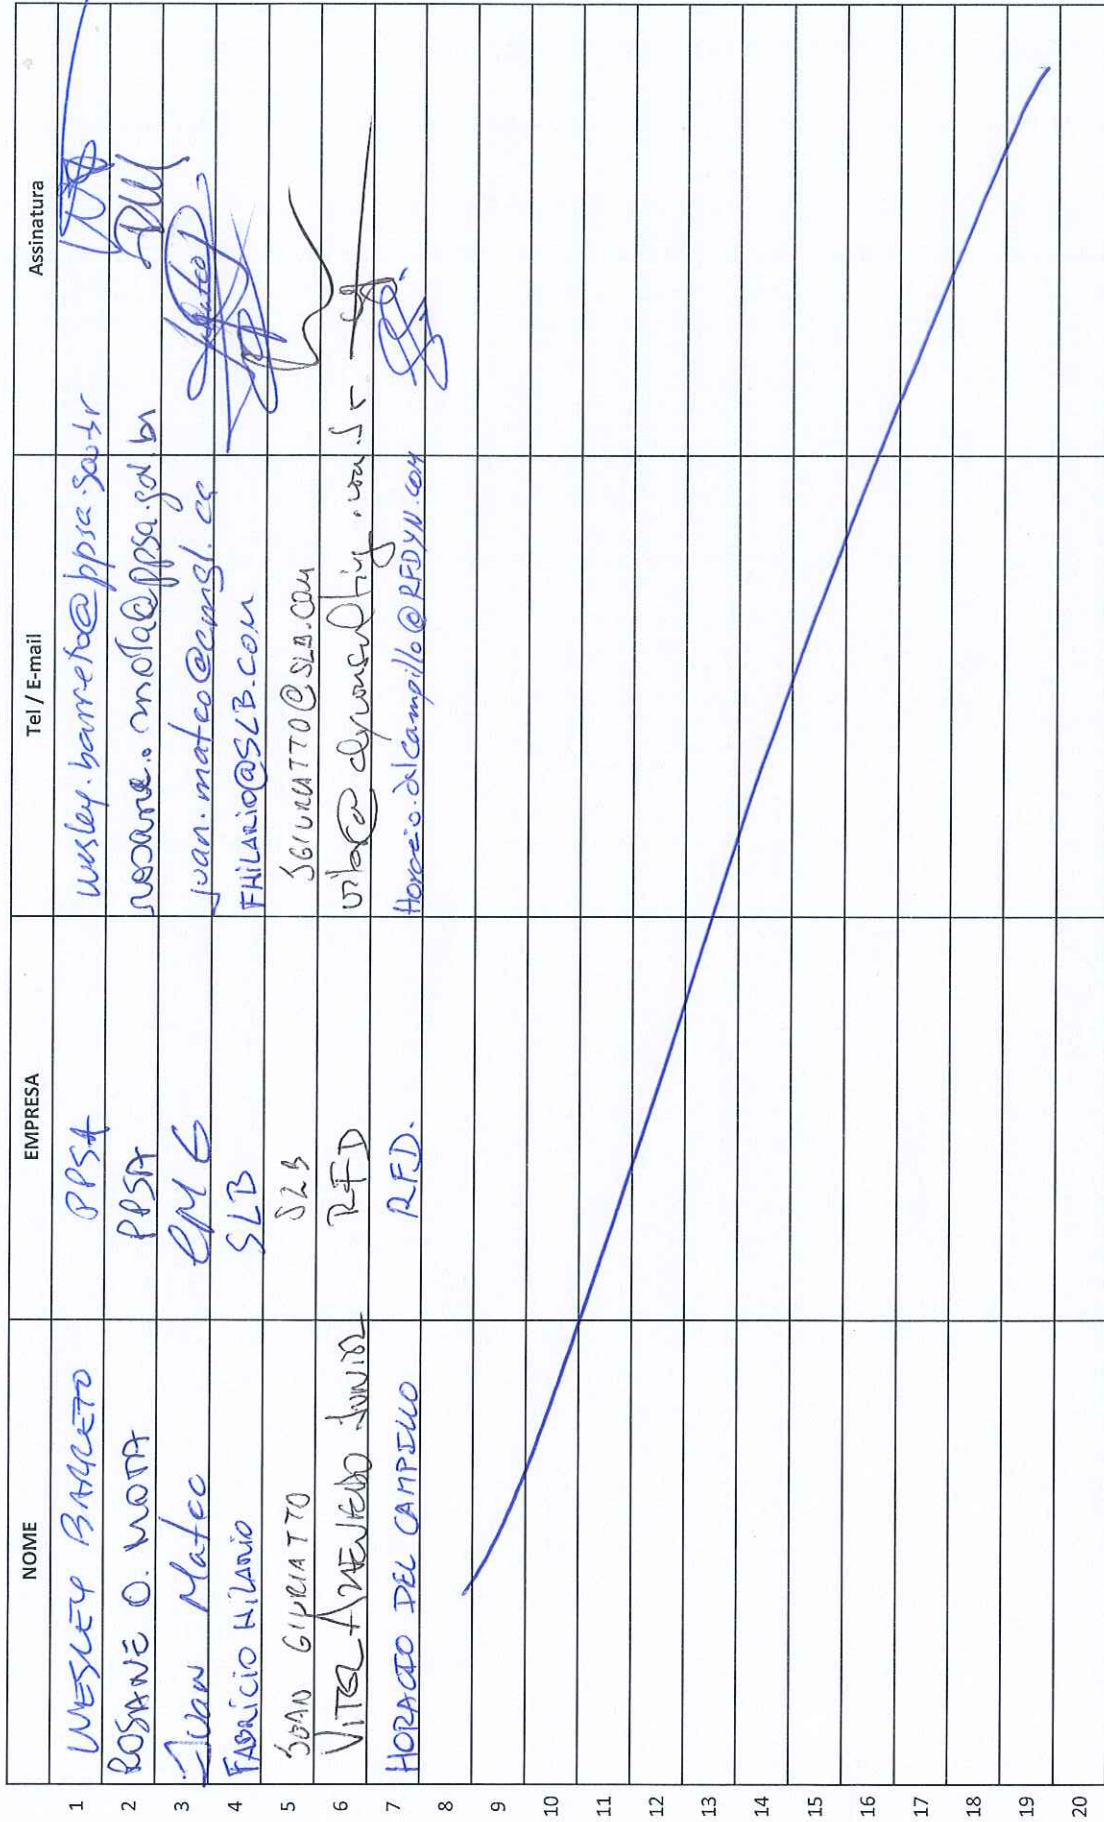 NOME EMPRESA Tel / E-mail Assinatura
1 WESLEY BARRETO PPSA wesley.barreto@ppsa.gov.br
2 ROSANE O. MOTA PPSA rosane.mota@ppsa.gov.br
3 Juan Mateo CMG juan.mateo@cmgl.ca
4 FABRÍCIO HILARIO SLB FHILARIO@SLB.COM
5 GIURIATTO SLB SGIURIATTO@SLB.COM
6 JUNIOR RFD
7 HORACIO DEL CAMPILLO R.F.D. Horacio.delcampillo@RFDYN.COM
8
9
10
11
12
13
14
15
16
17
18
19
20